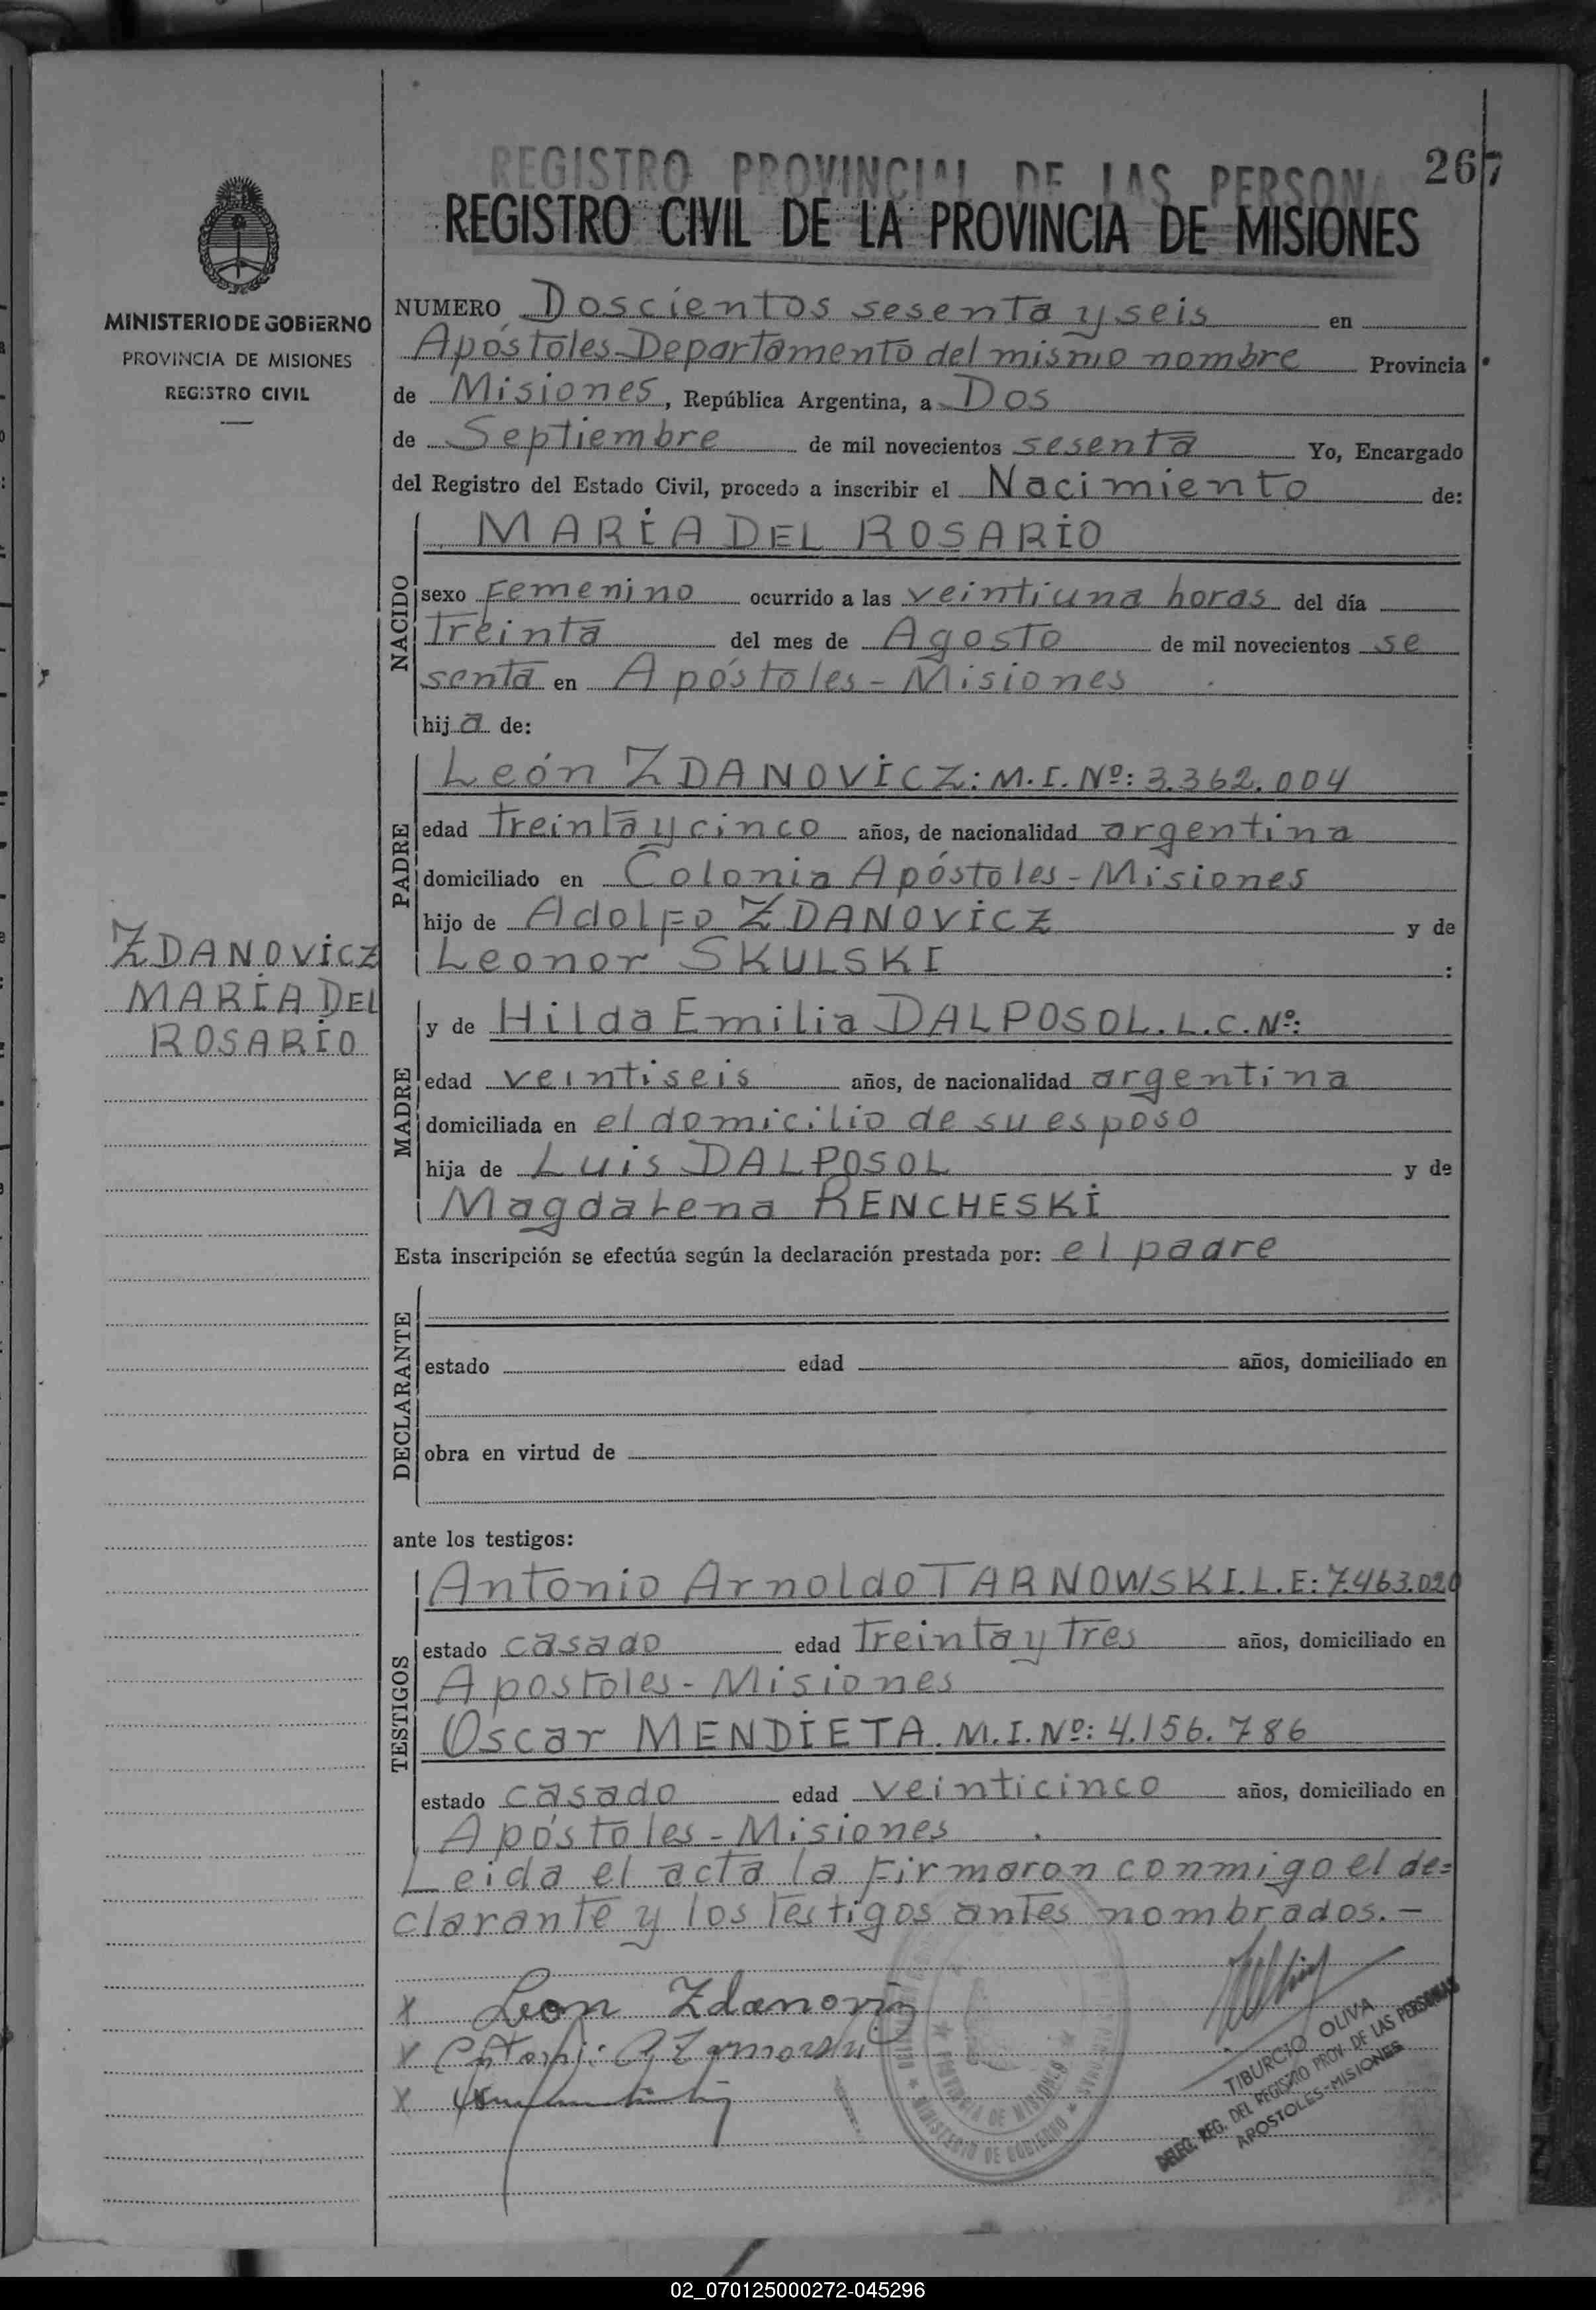 REGISTRO PROVINCIAL DE LAS PERSONA
267
REGISTRO CIVIL DE LA PROVINCIA DE MISIONES
MINISTERIO DE GOBIERNO
PROVINCIA DE MISIONES
REGISTRO CIVIL
NUMERO Doscientos sesenta y seis en
Apóstoles-Departamento del mismo nombre Provincia
de Misiones, República Argentina, a Dos
de Septiembre de mil novecientos sesenta Yo, Encargado
del Registro del Estado Civil, procedo a inscribir el Nacimiento de:
NACIDO
MARÍA DEL ROSARIO
sexo Femenino ocurrido a las veintiuna horas del día
Treinta del mes de Agosto de mil novecientos se
senta en Apóstoles-Misiones
hija de:
PADRE
León ZDANOVICZ: M.I. Nº: 3.362.004
edad treinta y cinco años, de nacionalidad argentina
domiciliado en Colonia Apóstoles-Misiones
hijo de Adolfo ZDANOVICZ y de
Leonor SKULSKI :
ZDANOVICZ
MARÍA DEL
ROSARIO
MADRE
y de Hilda Emilia DALPOSOL. L.C. Nº:
edad veintiseis años, de nacionalidad argentina
domiciliada en el domicilio de su esposo
hija de Luis DALPOSOL y de
Magdalena RENCHESKI
Esta inscripción se efectúa según la declaración prestada por: el padre
DECLARANTE
estado edad años, domiciliado en
obra en virtud de
ante los testigos:
TESTIGOS
Antonio Arnoldo TARNOWSKI. L.E: 7.463.020
estado casado edad treinta y tres años, domiciliado en
Apostoles-Misiones
Oscar MENDIETA. M.I. Nº: 4.156.786
estado casado edad veinticinco años, domiciliado en
Apóstoles-Misiones
Leida el acta la firmaron conmigo el de=
clarante y los testigos antes nombrados.-
x Leon Zdanoviz
x
x
PROVINCIA DE MISIONES
MINISTERIO DE GOBIERNO
TIBURCIO OLIVA
DELEG. REG. DEL REGISTRO PROV. DE LAS PERSONAS
APOSTOLES-MISIONES
02_070125000272-045296